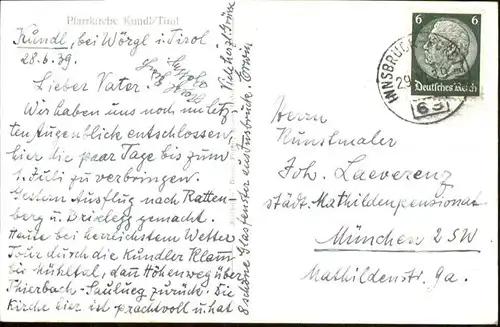 Pfarrkirche Kundl/Tirol
Kundl, bei Wörgl i Tirol
28.6.39.
Lieber Vater.
Wir haben uns noch im letz-
ten Augenblick entschlossen,
hier die paar Tage bis zum
1. Juli zu verbringen.
Gestern Ausflug nach Ratten-
berg u Brixlegg gemacht.
Heute bei herrlichstem Wetter
Tour durch die Kundler Klam
bis Mühltal, dann Höhenweg über
Thierbach-Saulueg zurück. Die
Kirche hier ist prachtvoll u. hat
8 schöne Glasfenster aus Innsbruck. Erwin
Viele herzl. Grüsse
6 6
Deutsches Reich
INNSBRUCK
29
63
Herrn
Kunstmaler
Joh. Laeverenz
städt. Mathildenpensionat
München 2SW
Mathildenstr. 9a.